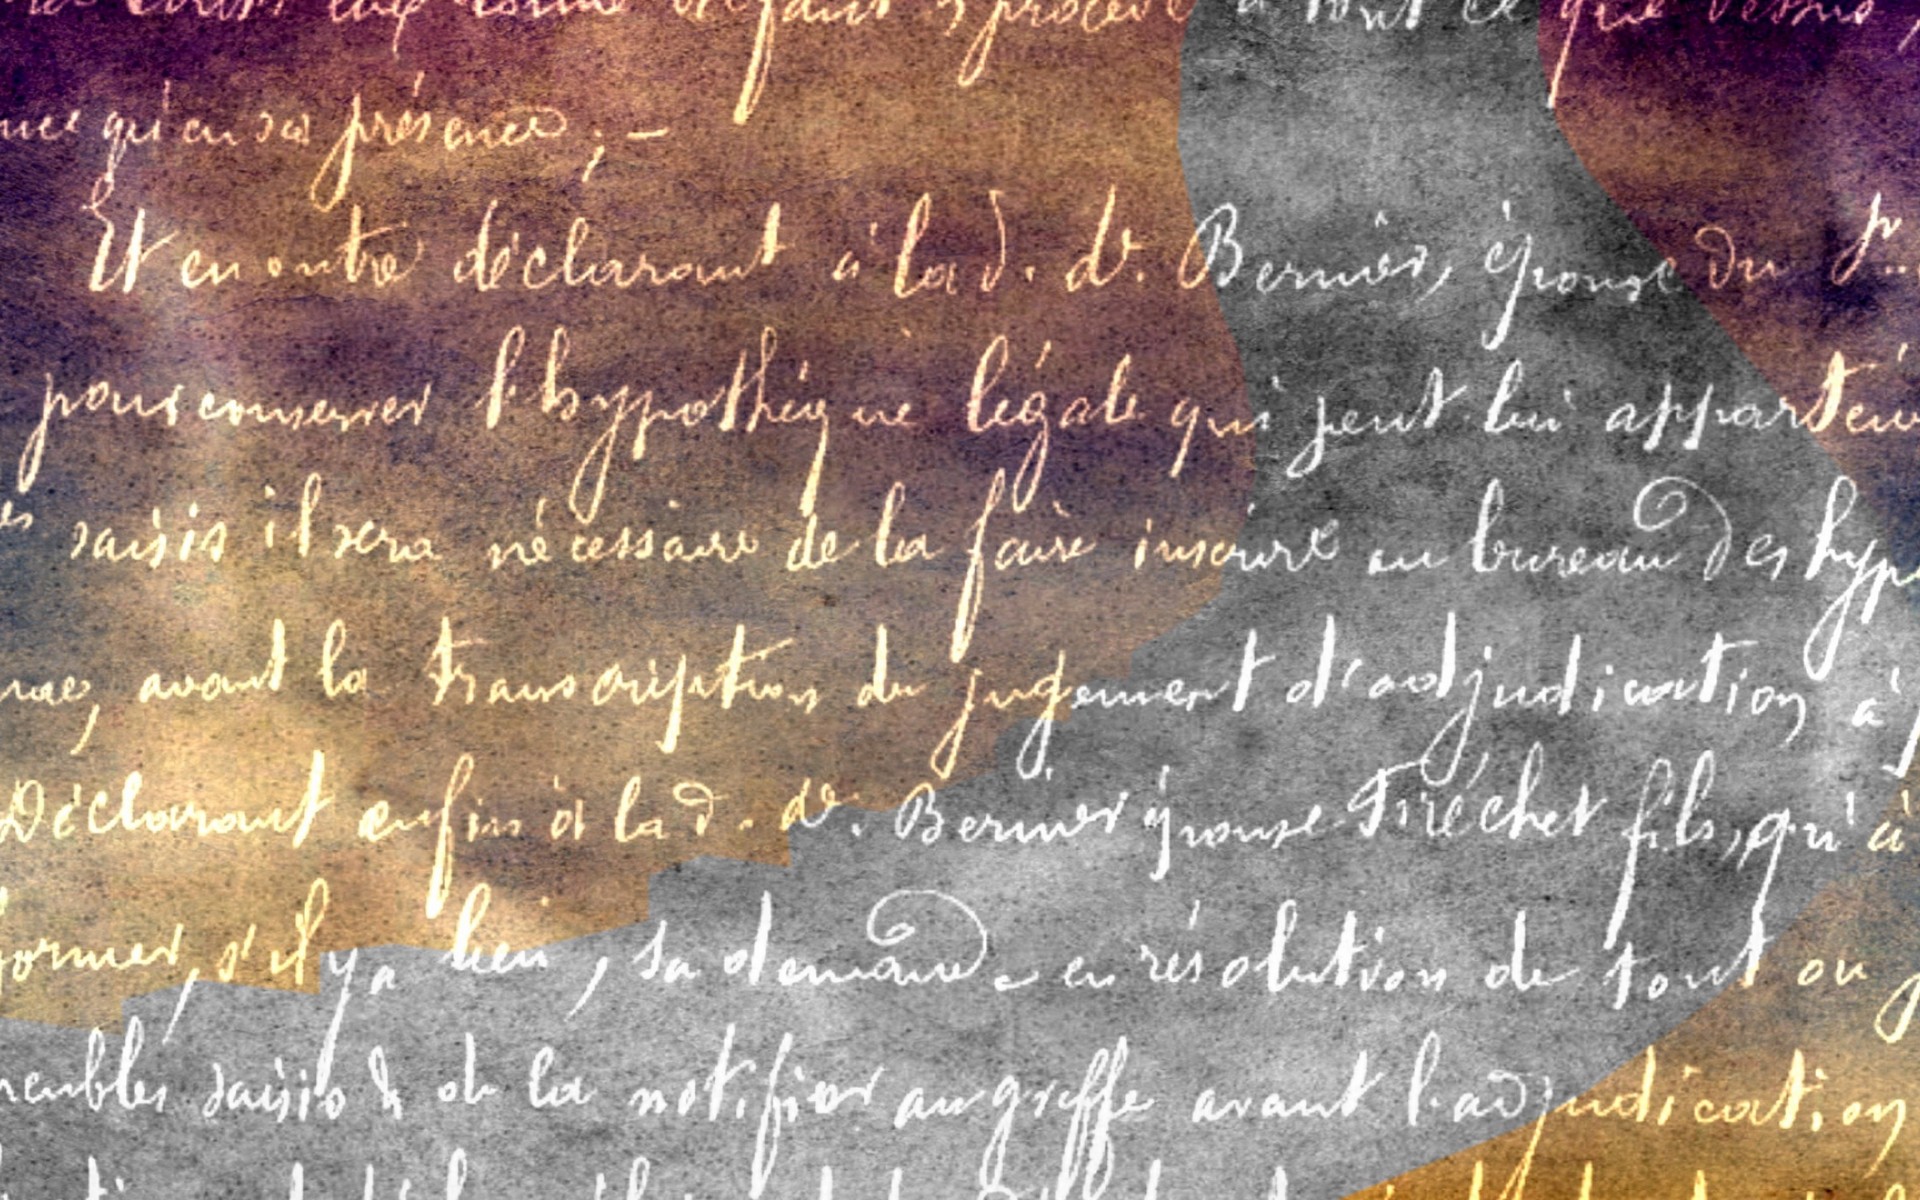 faut procédé à tout ce que dessus,
qu'en sa présence ; —
Et en outre déclarant à la d. de. Bernier, épouse du
pour conserver l'hypothèque légale qui peut lui apparten
es saisis il sera nécessaire de la faire inscrire au bureau des hypo
avant la transcription du jugement d'adjudication à
Déclarant enfin à la d. de. Bernier épouse Fréchet fils, qu'à
former, s'il y a lieu, sa demande en résolution de tout ou
meubles saisis & de la notifier au greffe avant l'adjudication